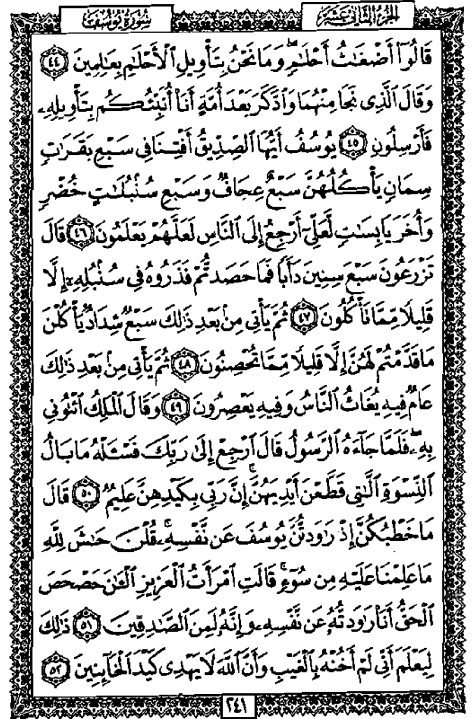 سُورَةُ يُوسُفَ
الجزء الثاني عشر
قَالُوٓا۟ أَضْغَٰثُ أَحْلَٰمٍ ۖ وَمَا نَحْنُ بِتَأْوِيلِ ٱلْأَحْلَٰمِ بِعَٰلِمِينَ ٤٤
وَقَالَ ٱلَّذِى نَجَا مِنْهُمَا وَٱدَّكَرَ بَعْدَ أُمَّةٍ أَنَا۠ أُنَبِّئُكُم بِتَأْوِيلِهِۦ
فَأَرْسِلُونِ ٤٥ يُوسُفُ أَيُّهَا ٱلصِّدِّيقُ أَفْتِنَا فِى سَبْعِ بَقَرَٰتٍ
سِمَانٍ يَأْكُلُهُنَّ سَبْعٌ عِجَافٌ وَسَبْعِ سُنۢبُلَٰتٍ خُضْرٍ
وَأُخَرَ يَابِسَٰتٍ لَّعَلِّىٓ أَرْجِعُ إِلَى ٱلنَّاسِ لَعَلَّهُمْ يَعْلَمُونَ ٤٦ قَالَ
تَزْرَعُونَ سَبْعَ سِنِينَ دَأَبًا فَمَا حَصَدتُّمْ فَذَرُوهُ فِى سُنۢبُلِهِۦٓ إِلَّا
قَلِيلًا مِّمَّا تَأْكُلُونَ ٤٧ ثُمَّ يَأْتِى مِنۢ بَعْدِ ذَٰلِكَ سَبْعٌ شِدَادٌ يَأْكُلْنَ
مَا قَدَّمْتُمْ لَهُنَّ إِلَّا قَلِيلًا مِّمَّا تُحْصِنُونَ ٤٨ ثُمَّ يَأْتِى مِنۢ بَعْدِ ذَٰلِكَ
عَامٌ فِيهِ يُغَاثُ ٱلنَّاسُ وَفِيهِ يَعْصِرُونَ ٤٩ وَقَالَ ٱلْمَلِكُ ٱئْتُونِى
بِهِۦ ۖ فَلَمَّا جَآءَهُ ٱلرَّسُولُ قَالَ ٱرْجِعْ إِلَىٰ رَبِّكَ فَسْـَٔلْهُ مَا بَالُ
ٱلنِّسْوَةِ ٱلَّٰتِى قَطَّعْنَ أَيْدِيَهُنَّ ۚ إِنَّ رَبِّى بِكَيْدِهِنَّ عَلِيمٌ ٥٠ قَالَ
مَا خَطْبُكُنَّ إِذْ رَٰوَدتُّنَّ يُوسُفَ عَن نَّفْسِهِۦ ۚ قُلْنَ حَٰشَ لِلَّهِ
مَا عَلِمْنَا عَلَيْهِ مِن سُوٓءٍ ۚ قَالَتِ ٱمْرَأَتُ ٱلْعَزِيزِ ٱلْـَٰٔنَ حَصْحَصَ
ٱلْحَقُّ أَنَا۠ رَٰوَدتُّهُۥ عَن نَّفْسِهِۦ وَإِنَّهُۥ لَمِنَ ٱلصَّٰدِقِينَ ٥١ ذَٰلِكَ
لِيَعْلَمَ أَنِّى لَمْ أَخُنْهُ بِٱلْغَيْبِ وَأَنَّ ٱللَّهَ لَا يَهْدِى كَيْدَ ٱلْخَآئِنِينَ ٥٢
٢٤١